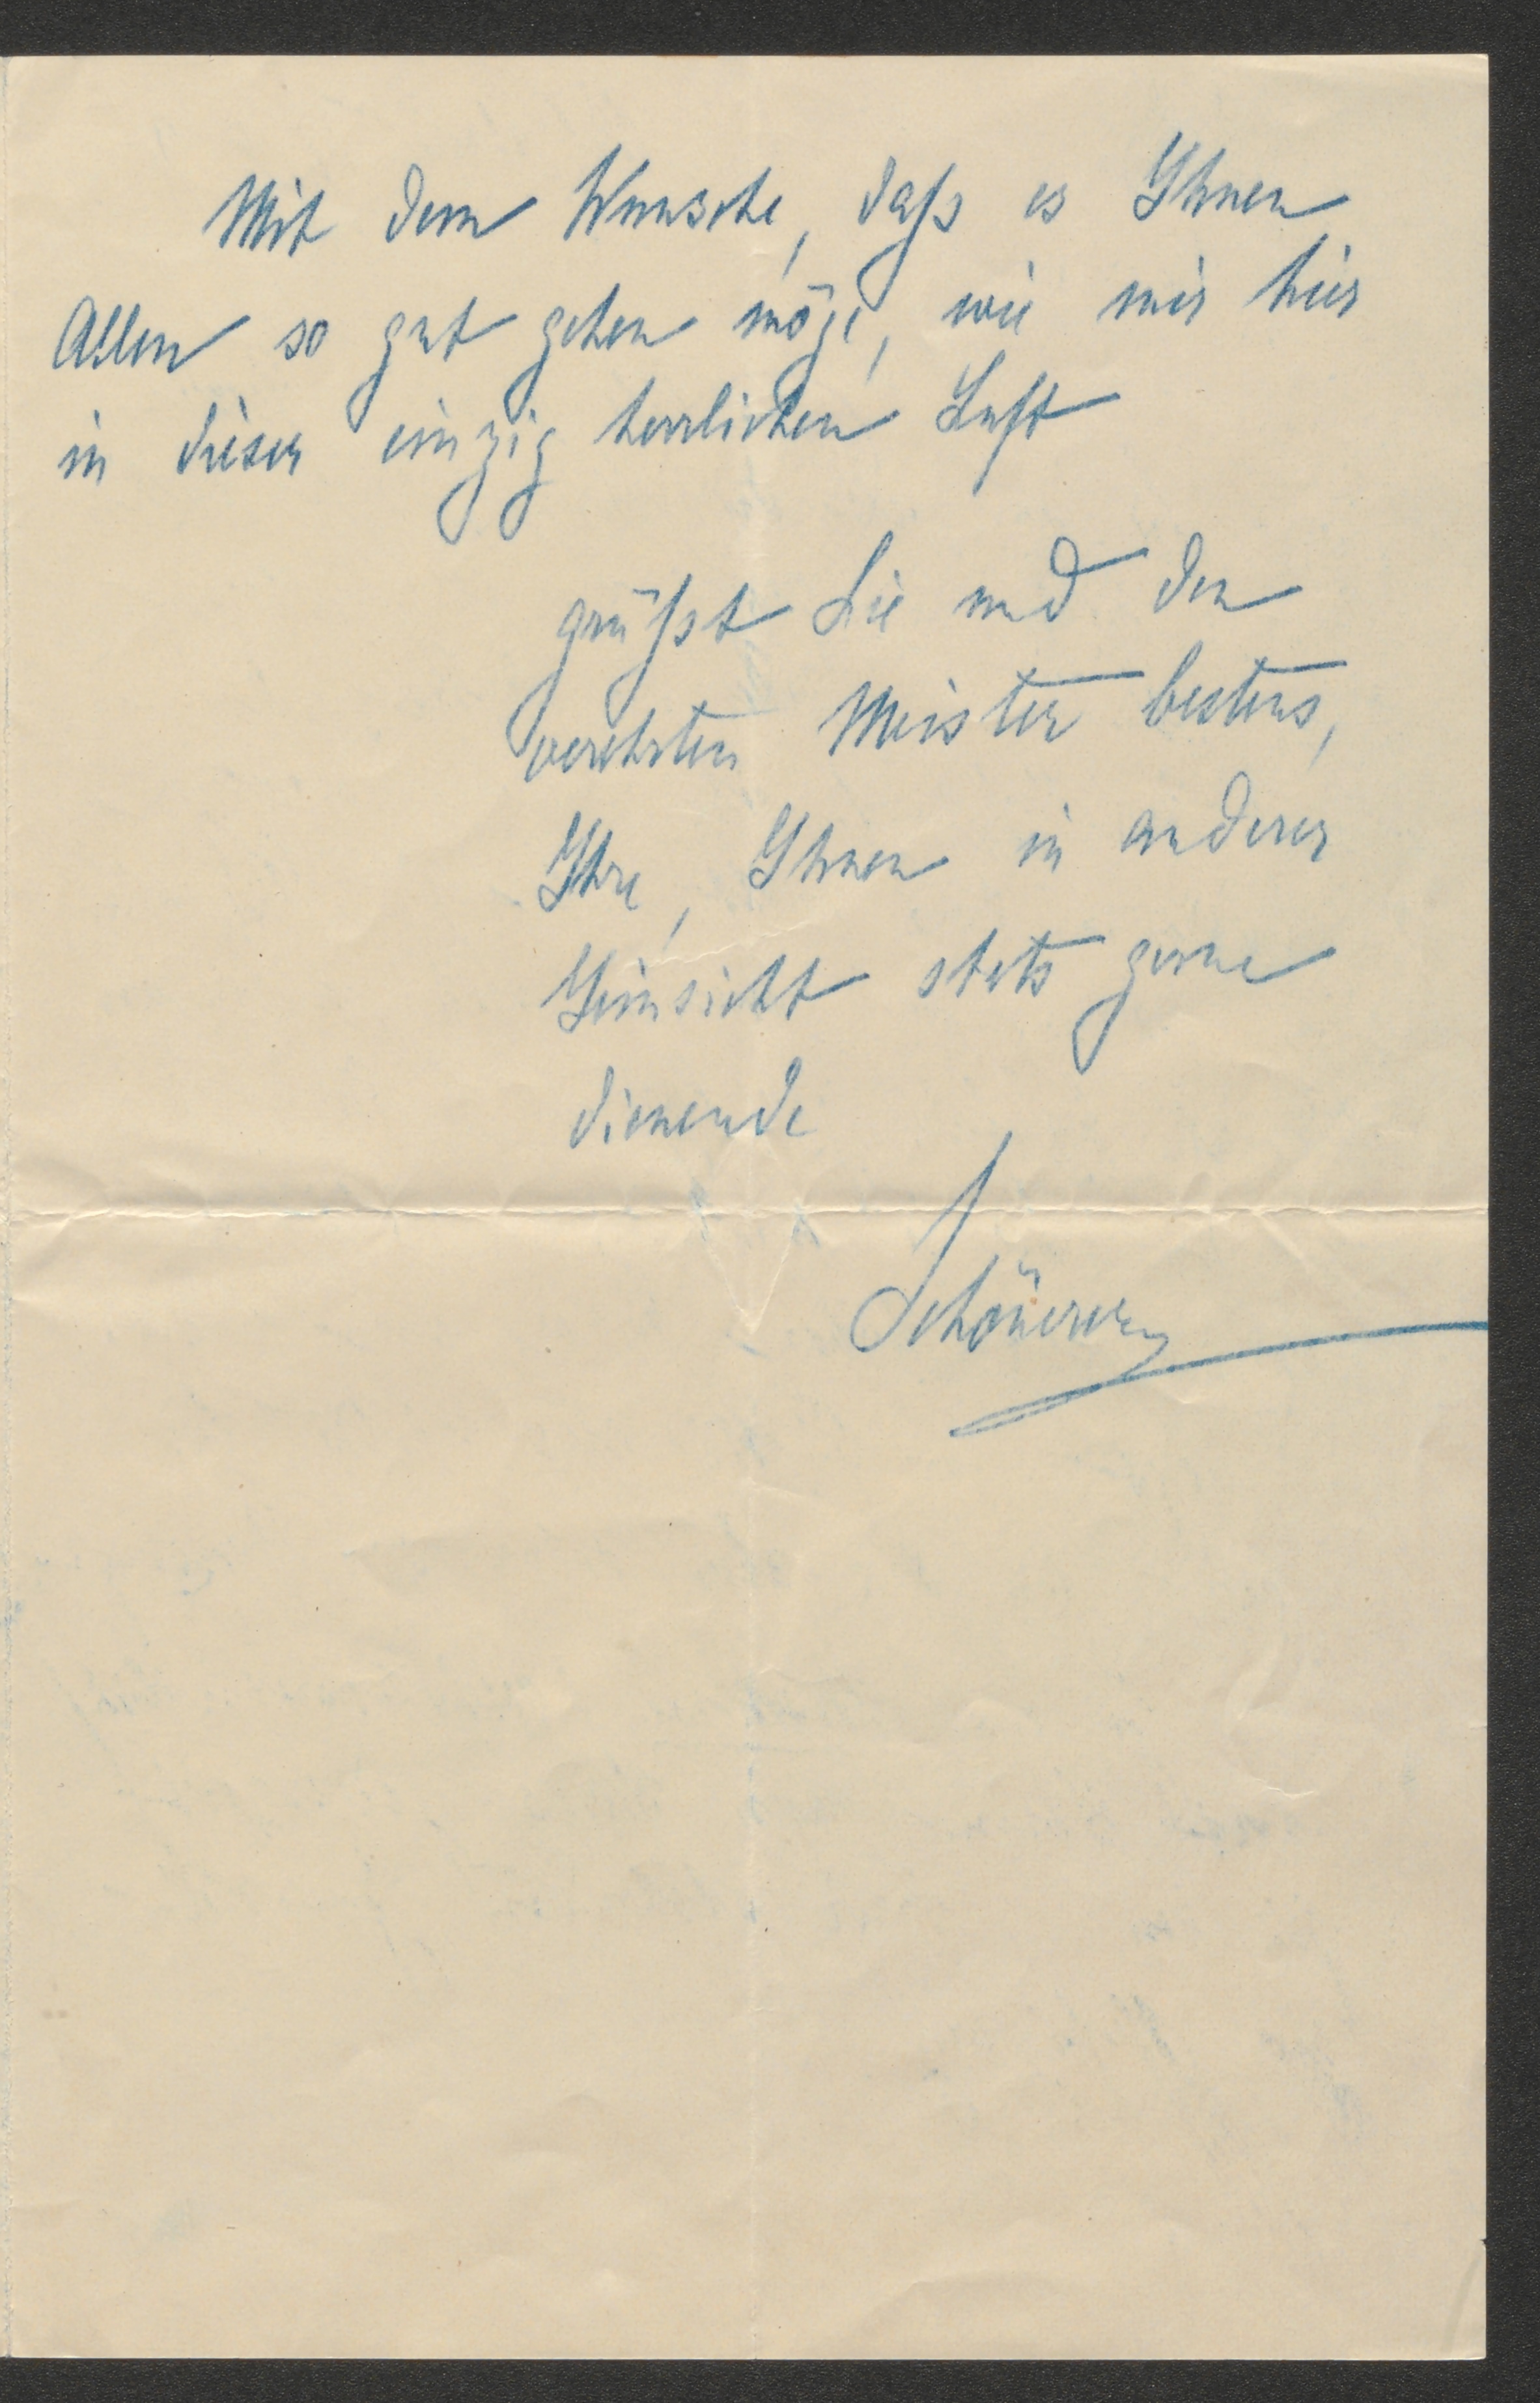 Mit dem Wunsche, daß es Ihnen
Allen so gut gehen möge, wie mir hier
in dieser einzig herrlichen Luft
grüßt Sie und den
verehrten Meister bestens,
Ihre, Ihnen in anderer
Hinsicht stets gerne
dienende
Schönerer